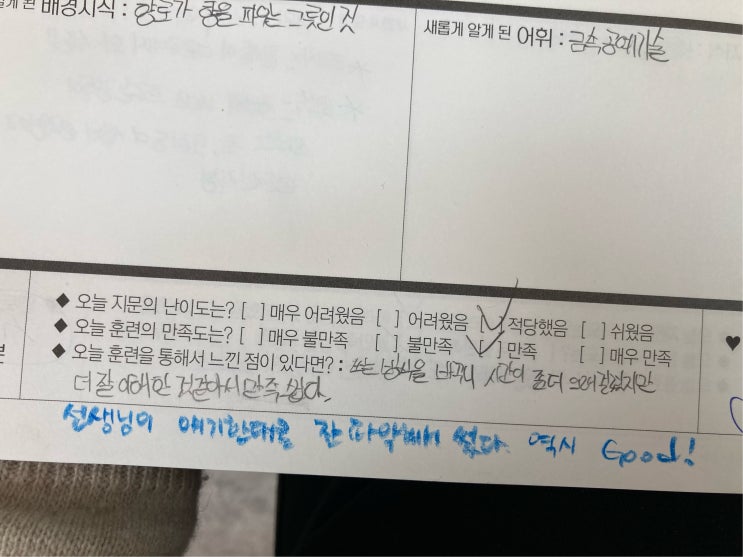 게 된 배경지식 : 향로가 향을 피우는 그릇인 것
새롭게 알게 된 어휘 : 금속공예기술
◆ 오늘 지문의 난이도는? [ ] 매우 어려웠음 [ ] 어려웠음 [✓] 적당했음 [ ] 쉬웠음
◆ 오늘 훈련의 만족도는? [ ] 매우 불만족 [ ] 불만족 [✓] 만족 [ ] 매우 만족
◆ 오늘 훈련을 통해서 느낀 점이 있다면? : 쓰는 방식을 바꾸니 시간이 좀더 오래걸렸지만
더 잘 이해한 것같아서 만족
선생님이 얘기한대로 잘 파악해서 썼다. 역시 Good!